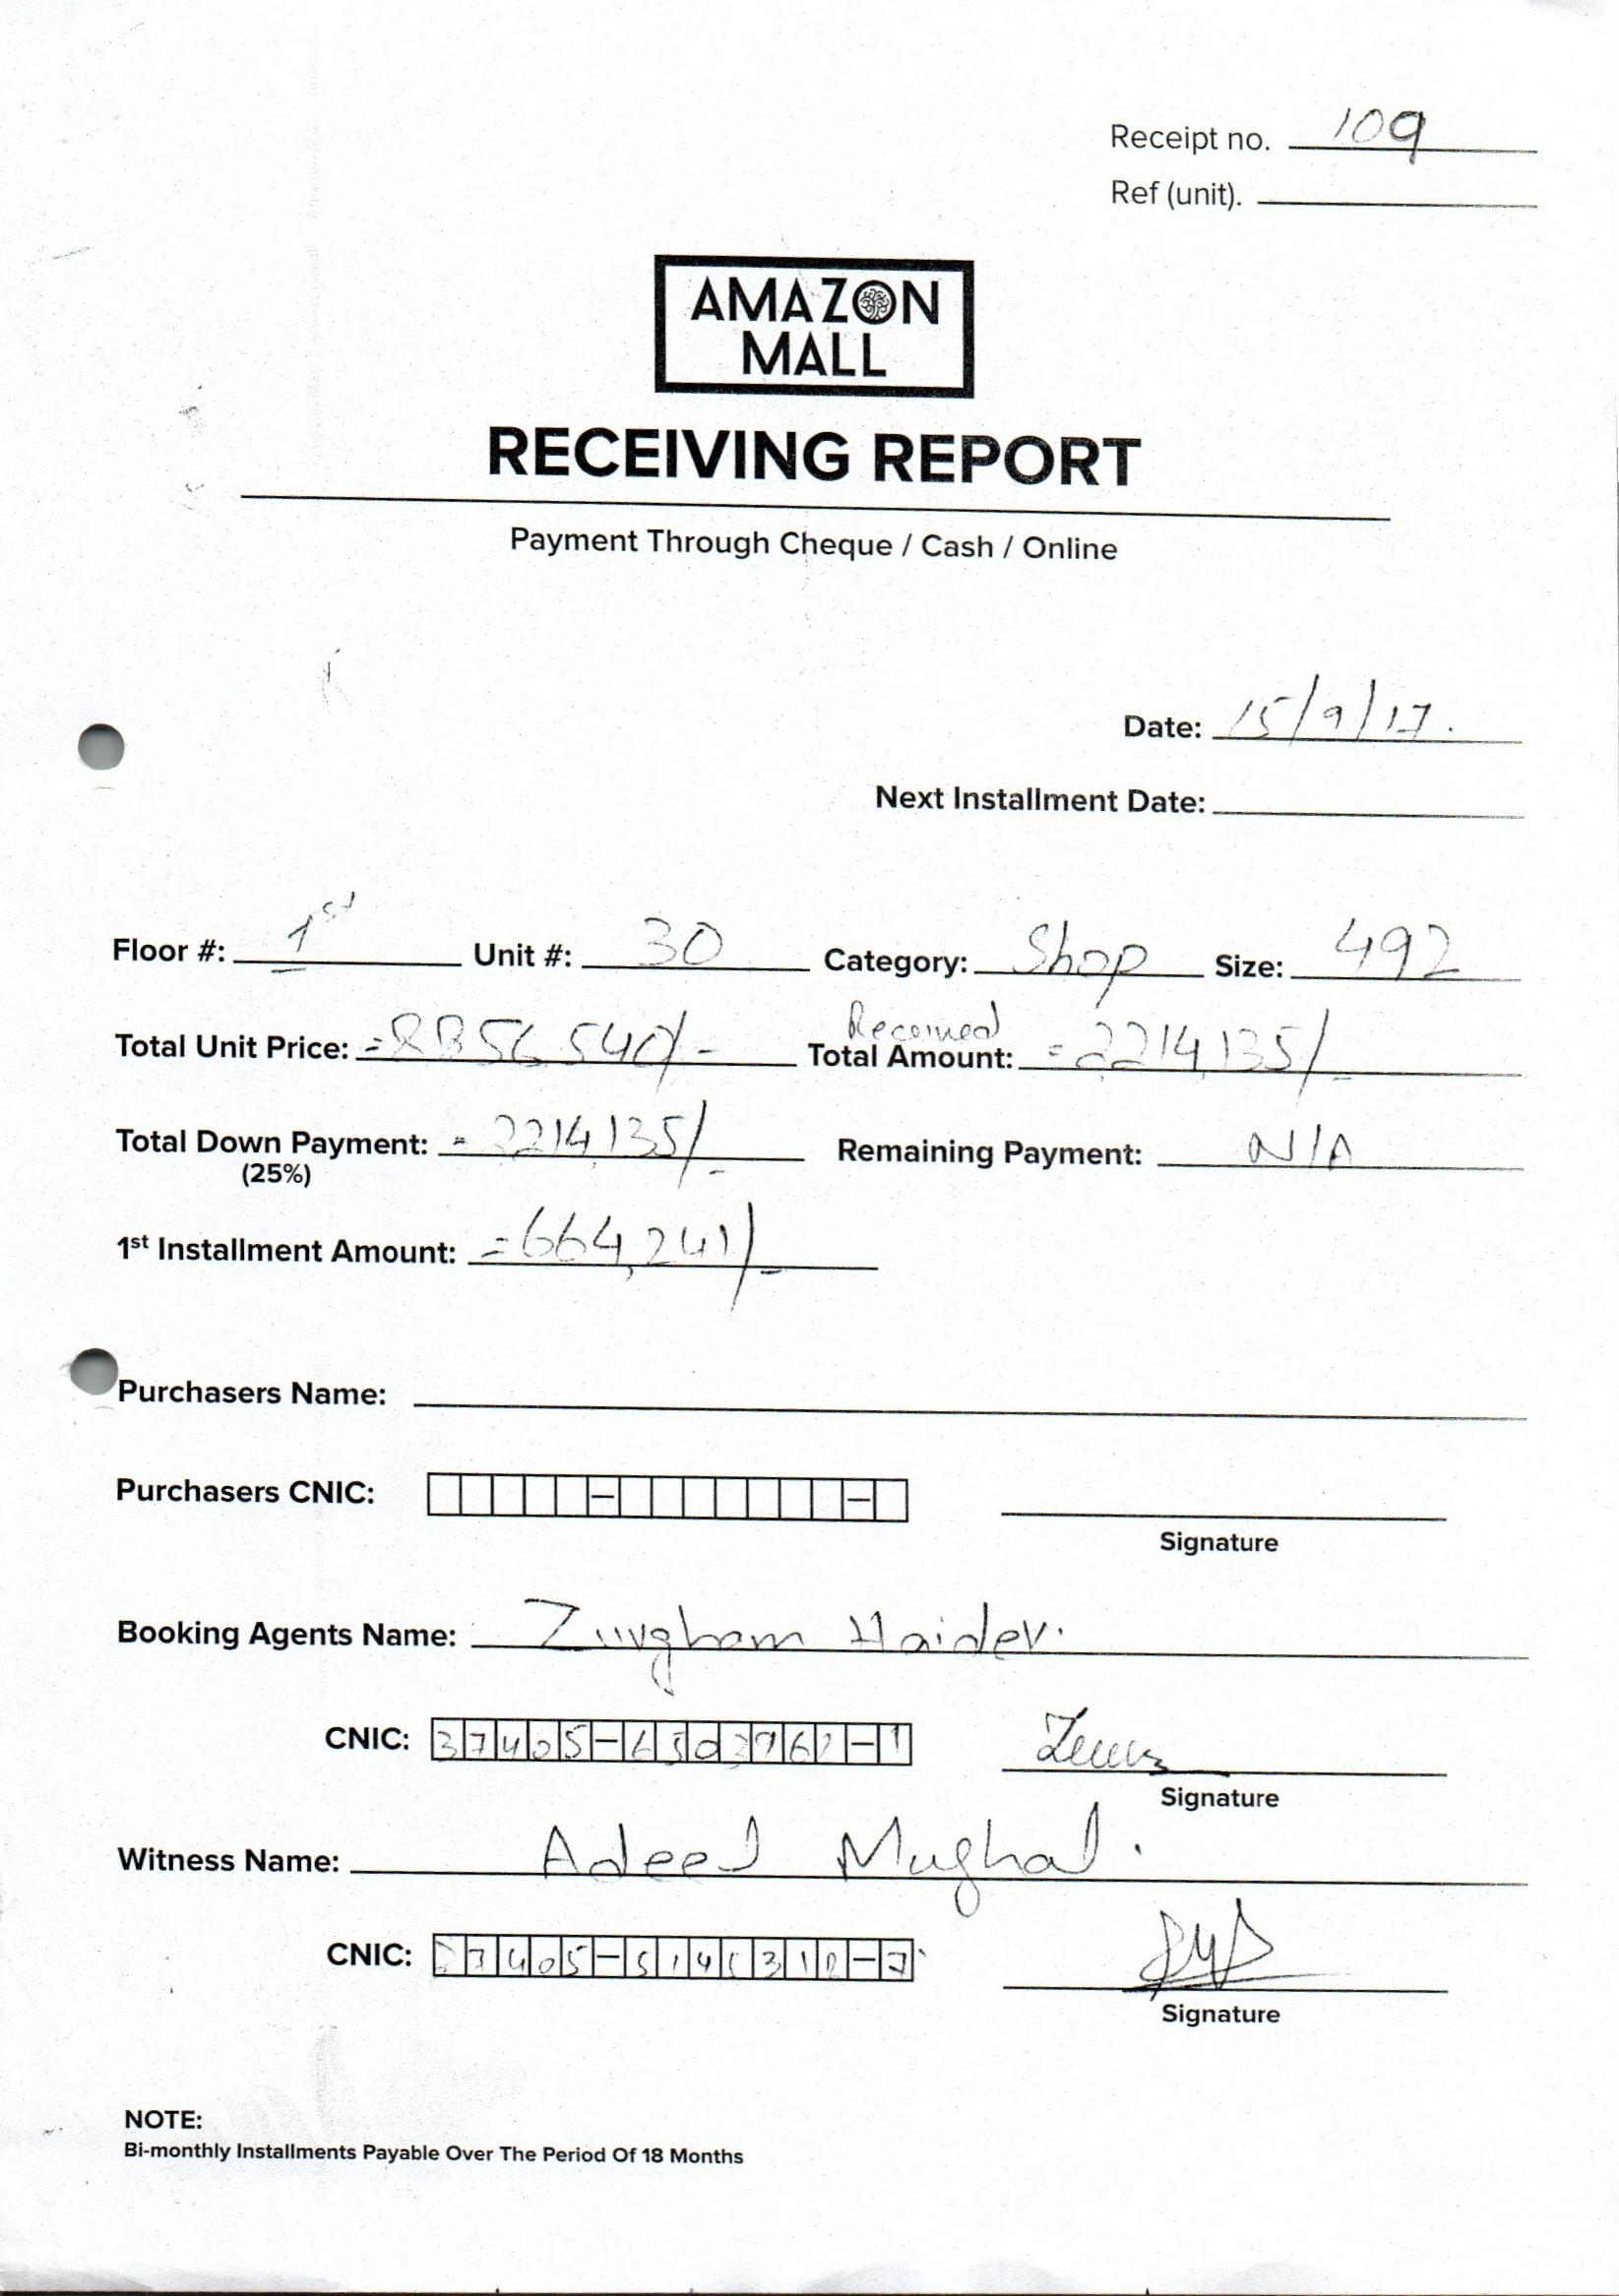 Receipt no. 109
Ref (unit).
AMAZON
MALL
RECEIVING REPORT
Payment Through Cheque / Cash / Online
Date: 15/9/17.
Next Installment Date:
Floor #: 1st Unit #: 30 Category: Shop Size: 492
Received
Total Unit Price: =8856540/- Total Amount: =2214,135/-
Total Down Payment: =2214,135/- Remaining Payment: N/A
(25%)
1st Installment Amount: =664,241/-
Purchasers Name:
Purchasers CNIC: – –
Signature
Booking Agents Name: Haider.
CNIC: 37405– –1
Signature
Witness Name: Adeel Mughal.
CNIC: –7
Signature
NOTE:
Bi-monthly Installments Payable Over The Period Of 18 Months